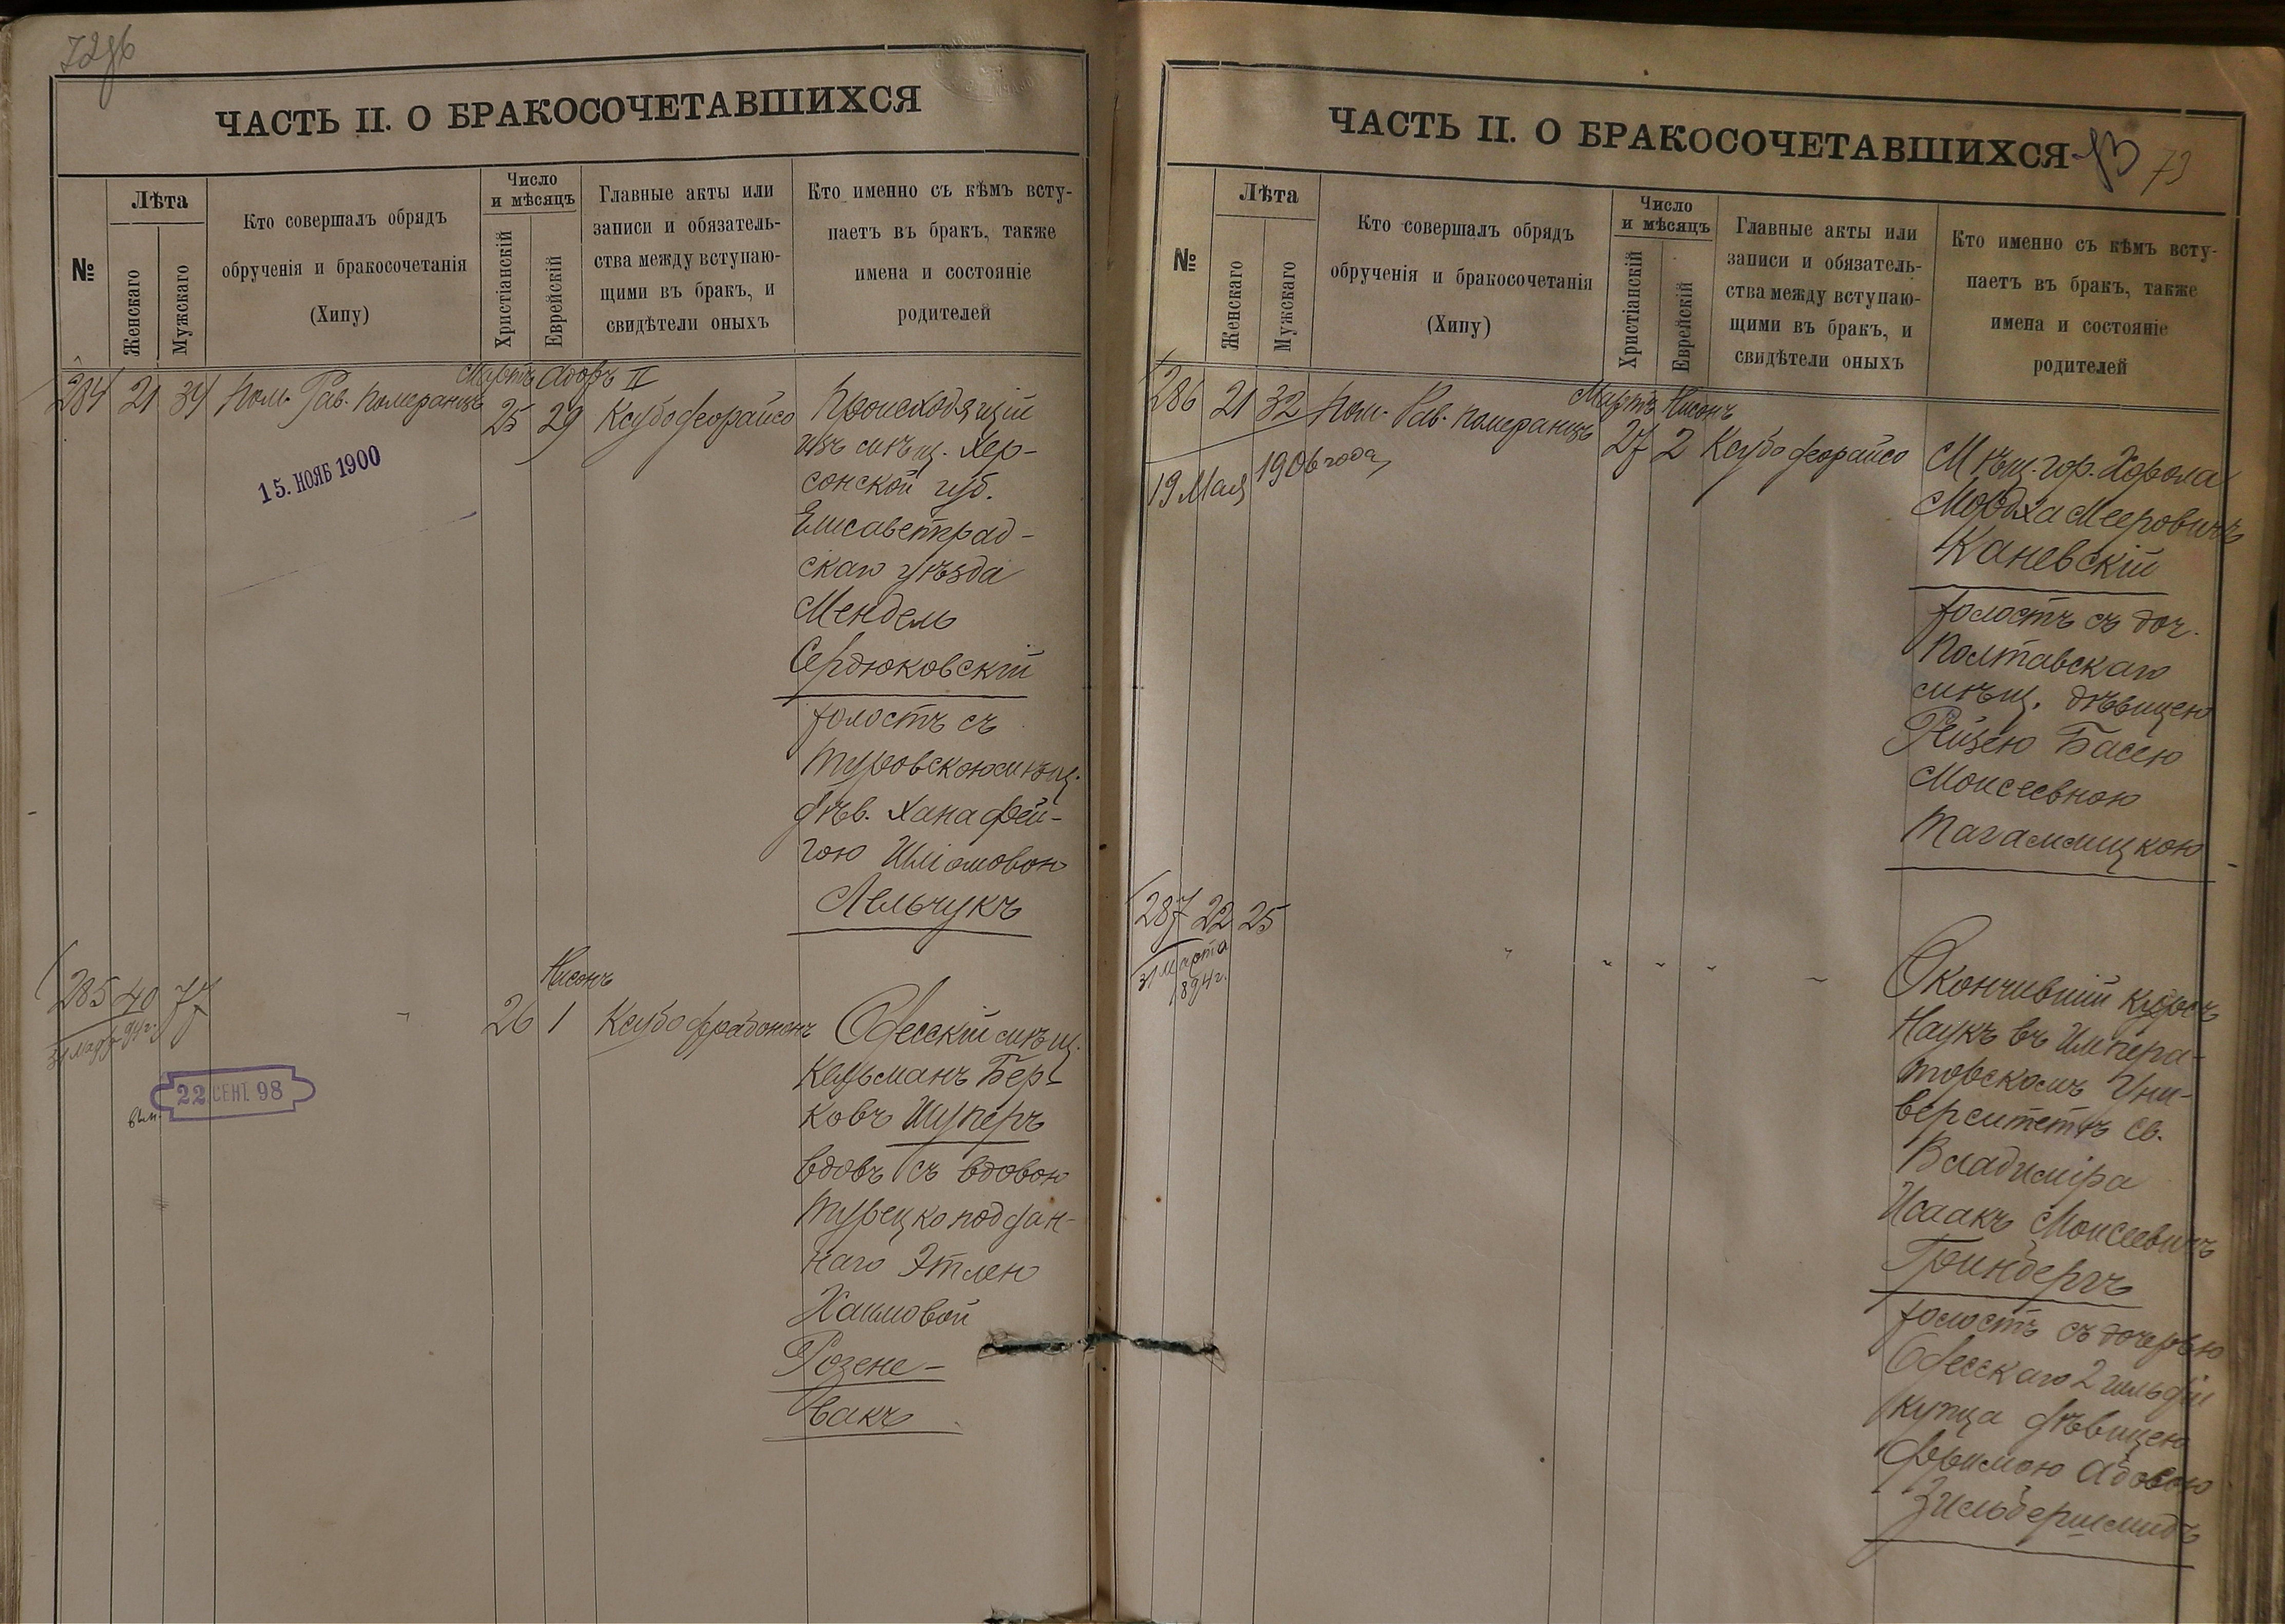 72об
ЧАСТЬ II. О БРАКОСОЧЕТАВШИХСЯ
№
Лѣта
Женскаго
Мужскаго
Кто совершалъ обрядъ
обрученія и бракосочетанія
(Хипу)
Число
и мѣсяцъ
Христіанскій
Еврейскій
Главные акты или
записи и обязатель-
ства между вступаю-
щими въ бракъ, и
свидѣтели оныхъ
Кто именно съ кѣмъ всту-
паетъ въ бракъ, также
имена и состояніе
родителей
Мартъ Адоръ II
284 21 34 Пом. Рав. Померанцъ 25 29 Ксубо деорайсо
15. НОЯБ 1900
Происходящій
изъ мѣщ. Хер-
сонской губ.
Елисаветград-
скаго уѣзда
Мендель
Сердюковскій
холостъ съ
Туровскою мѣщ.
дѣв. Хана Фей-
гою Шліомовою
Лельчукъ
Нисонъ
285 40 77 " 26 1 Ксубо драбононъ
22 СЕНТ 98
вып.
Одесскій мѣщ.
Кельманъ Бер-
ковъ Шуперъ
вдовъ съ вдовою
Турецко поддан-
наго Этлею
Хаимовой
Розене-
вакъ
ЧАСТЬ II. О БРАКОСОЧЕТАВШИХСЯ
73
№
Лѣта
Женскаго
Мужскаго
Кто совершалъ обрядъ
обрученія и бракосочетанія
(Хипу)
Число
и мѣсяцъ
Христіанскій
Еврейскій
Главные акты или
записи и обязатель-
ства между вступаю-
щими въ бракъ, и
свидѣтели оныхъ
Кто именно съ кѣмъ всту-
паетъ въ бракъ, также
имена и состояніе
родителей
Мартъ Нисонъ
286 21 32 Пом. Рав. Померанцъ 27 2 Ксубо деорайсо
19 Мая 1906 года
Мѣщ. гор. Хорола
Мордха Мееровичъ
Каневскій
холостъ съ доч.
Полтавскаго
мѣщ. дѣвицею
Рейзею Басею
Моисеевною
Тагамлицкою
287 22 25 " " " " "
31 Марта
1894г.
Окончившій курсъ
Наукъ въ Импера-
торскомъ Уни-
верситетѣ Св.
Владиміра
Исаакъ Моисеевичъ
Гринбергъ
холостъ съ дочерью
Одесскаго 2 гильдіи
купца дѣвицею
Фримою Абовою
Зильбершмидъ